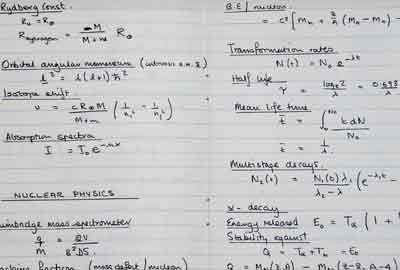 Rydberg Const.
R∞ = R∞
R hydrogen = M / M+m R∞
Orbital angular momentum (intrinsic
l² = l(l+1)ħ²
Isotope shift
ν = cR∞M / M+m (1/n₁² - 1/n₂²)
Absorption spectra
I = I₀e
NUCLEAR PHYSICS
Bainbridge mass spectrometer
q/M = 2V / B²DS.
fraction (mass defect / nucleon)
B.E / nucleon
= c² [Mn + Z/A (MH - Mn) -
Transformation rates
N(t) = N₀e^-λt
Half life
τ = loge2 / λ = 0.693
Mean life time
t̄ = ∫₀^N₀ t dN / N₀
t̄ = 1/λ
Multistage decays.
N₂(t) = N₁(0)λ₁ / λ₂-λ₁ (e^-λ₁t -
α-decay
Energy released E₀ = Tα (1 +
Stability against
Q = Tα + Tb = E₀
Q = M (Z,A) - M (Z-2, A-4)